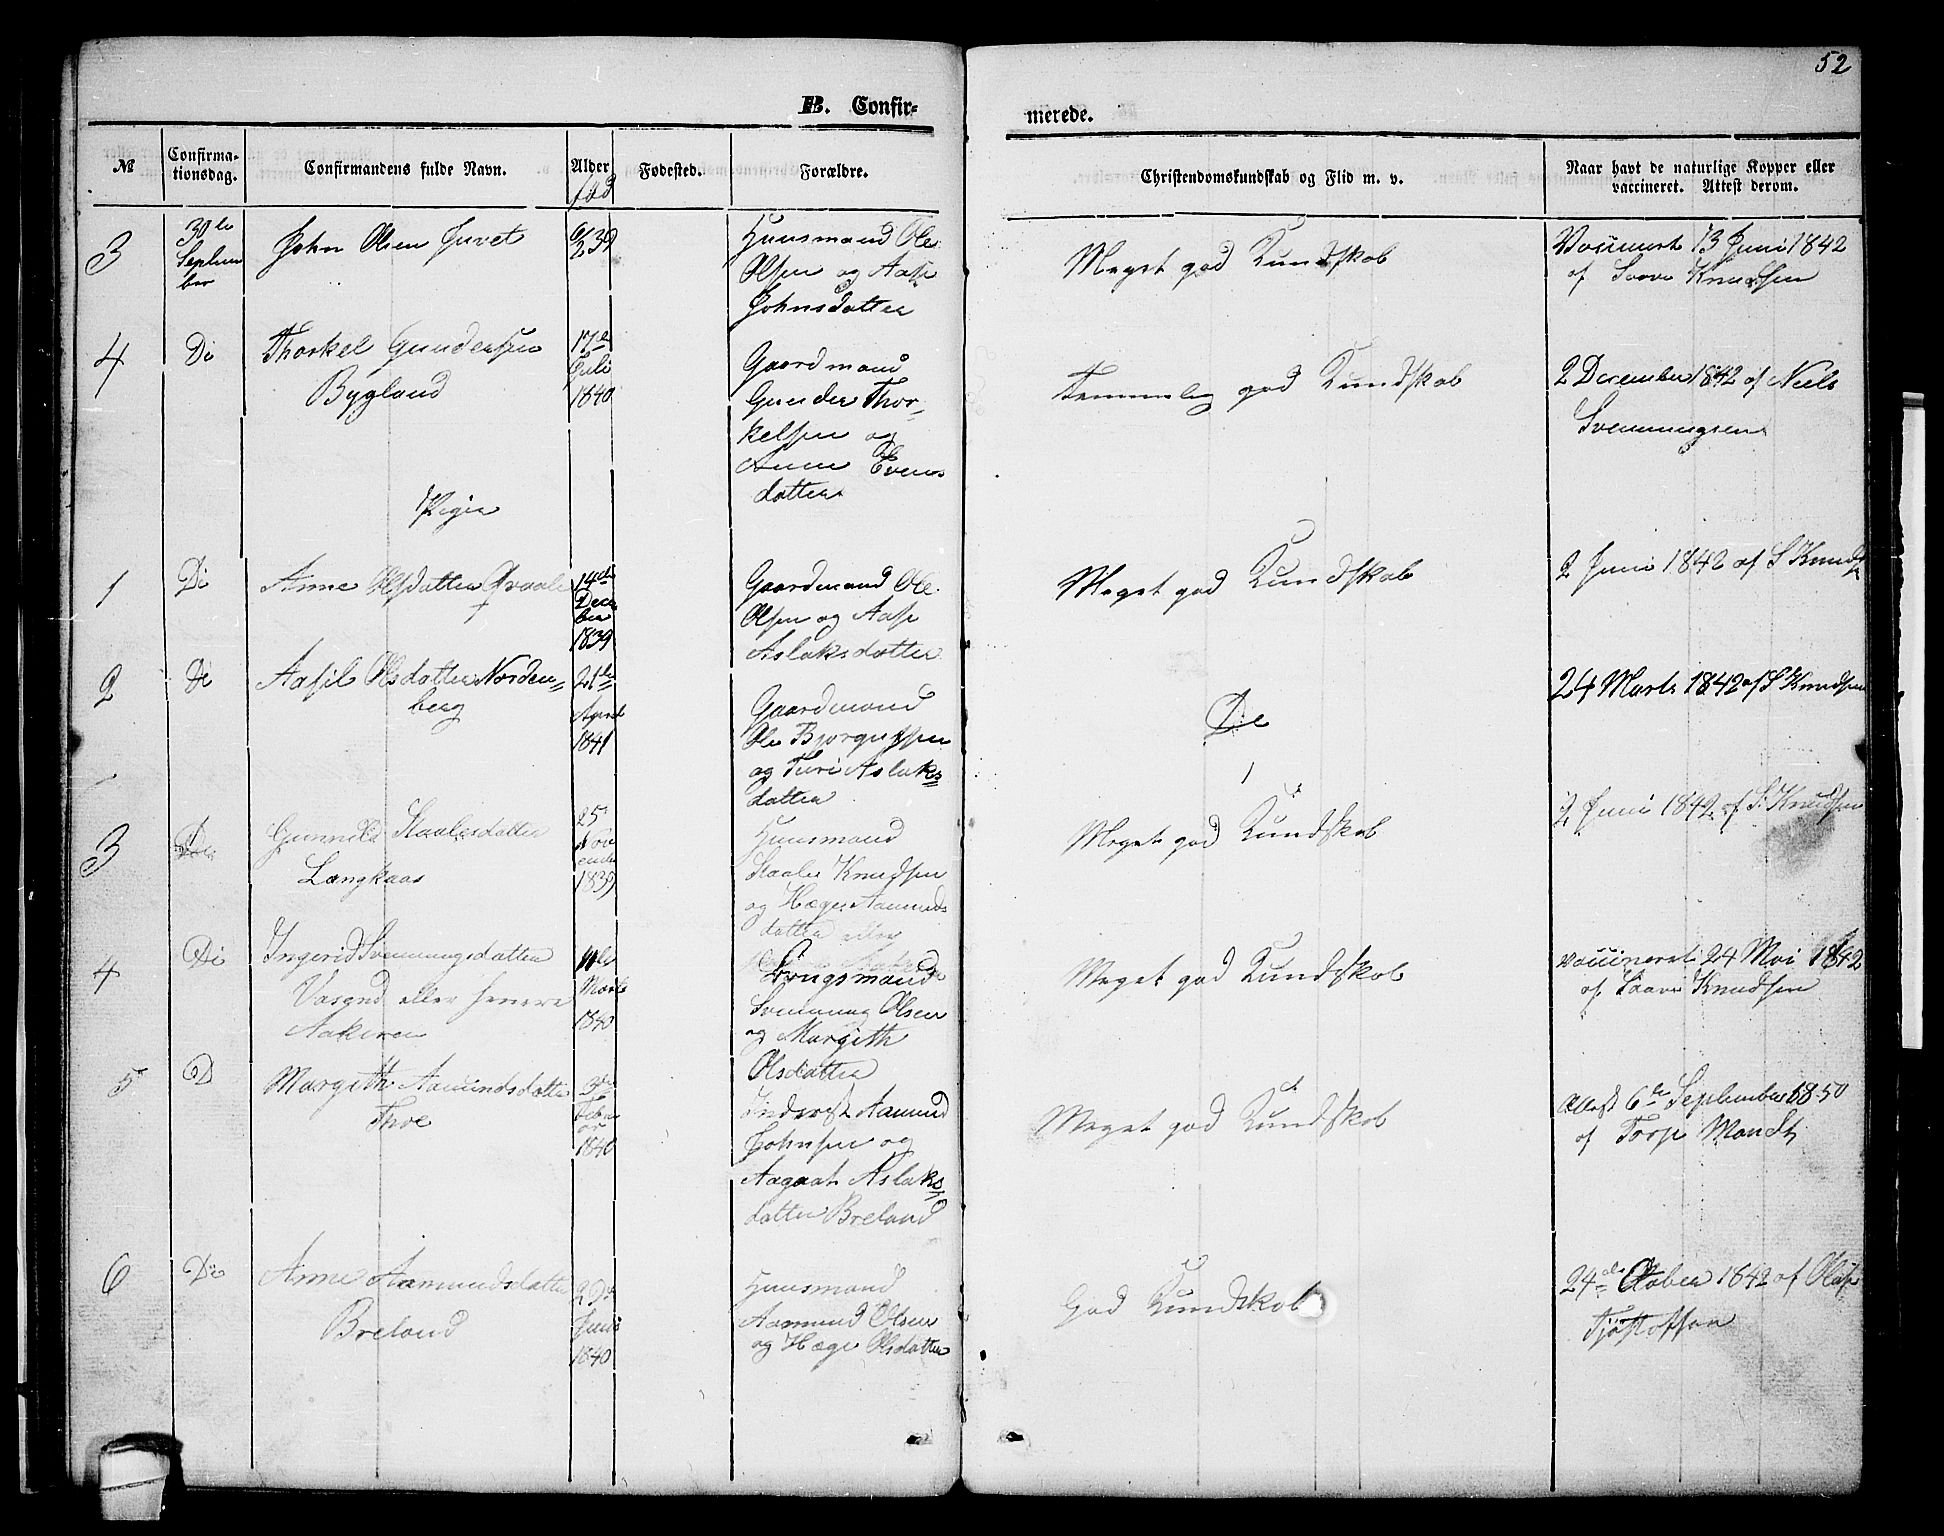 52
B. Confir-
merede.
№
Confirma-
tionsdag.
Confirmandens fulde Navn.
Alder
fød
Fødested.
Forældre.
Christendomskundskab og Flid m. v.
Naar havt de naturlige Kopper eller
vaccineret. Attest derom.
3
30te
Septem
ber
John Olsen Juvet
Huusmand Ole
Olsen og Aase
Johnsdatter
Meget god Kundskab
Vaccineret 13 Juni 1842
af Saave Knudsen
4
Do
Thorkel Gundersen
Bygland
17de
Juli
1840
Gaardmand
Gunder Thor-
kelsen og
Anne Evens
datter
Temmelig god Kundskab
2 December 1842 af Niels
Svenningsen
Piger
1
Do
Anne Olsdatter
14de
Decem
ber
1839
Gaardmand Ole
Olsen og Aase
Aslaksdatter
Meget god Kundskab
2 Juni 1842 af S Knuds
2
Do
Aasil Olsdatter Norden=
berg
21de
April
1841
Gaardmand
Ole Bjorgufsen
og Turi Aslaks
datter
Do
24 Marts 1842 af S Knudsen
3
Do
Gunnild Staalesdatter
Langkaas
25
Nov
ember
1839
Huusmand
Staale Knudsen
og Hæge Aamunds
datter eller
Meget god Kundskab
2 Juni 1842 af S. Knudsen
4
Do
Ingerid Svenningsdatter
eller senere
11te
Marts
1840
Brugsmand
Svenning Olsen
og Margith
Olsdatter
Meget god Kundskab
vaccineret 24 Mai 1842
af Saave Knudsen
5
D
Margith Aamundsdatter
Thoe
3de
Febru
ar
1840
Inderst Aamund
Johnsen og
Aagaat Aslaks
datter Breland
Meget god Kundskab
Attest 6te September 1850
af Torp Mandt
6
Do
Anne Aamundsdatter
Breland
29de
Juni
1840
Huusmand
Aamund Olsen
og Hæge Olsdatter
God Kundskab
24de October 1842 af Olaf
Tjøstofsen